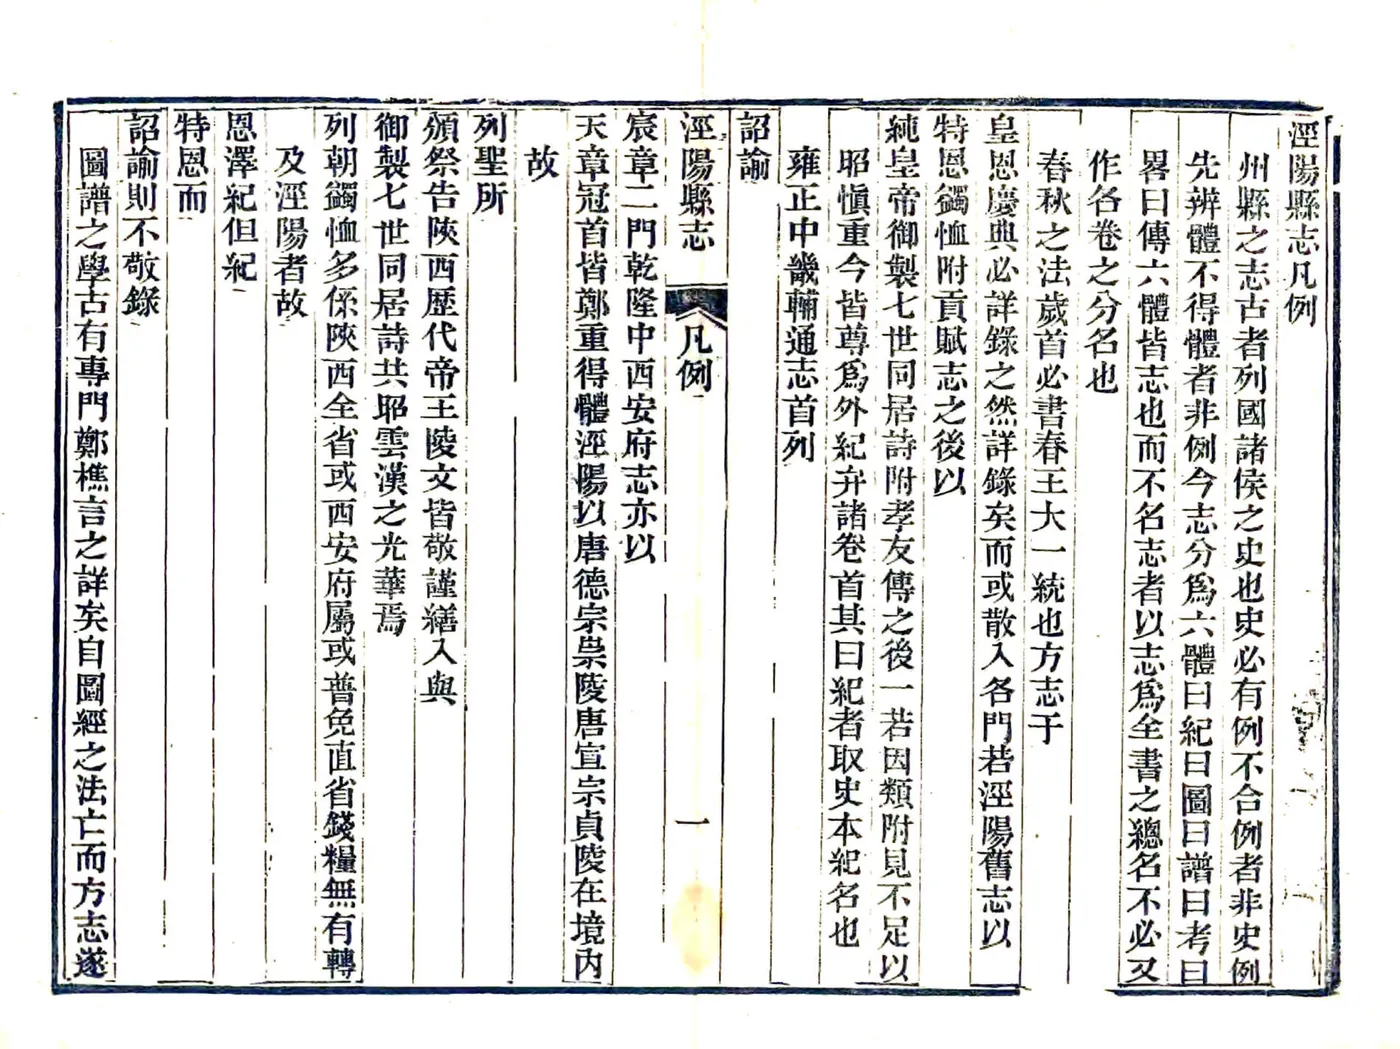 涇陽縣志凡例
州縣之志古者列國諸侯之史也史必有例不合例者非史例
先辨體不得體者非例今志分爲六體曰紀曰圖曰譜曰考曰
畧曰傳六體皆志也而不名志者以志爲全書之總名不必又
作各卷之分名也
春秋之法歲首必書春王大一統也方志于
皇恩慶典必詳錄之然詳錄矣而或散入各門若涇陽舊志以
特恩蠲恤附貢賦志之後以
純皇帝御製七世同居詩附孝友傳之後一若因類附見不足以
昭愼重今皆尊爲外紀弁諸卷首其曰紀者取史本紀名也
雍正中畿輔通志首列
詔諭
涇陽縣志
凡例
一
宸章二門乾隆中西安府志亦以
天章冠首皆鄭重得體涇陽以唐德宗崇陵唐宣宗貞陵在境內
故
列聖所
頒祭告陝西歷代帝王陵文皆敬謹繕入與
御製七世同居詩共昭雲漢之光華焉
列朝蠲恤多係陝西全省或西安府屬或普免直省錢糧無有轉
及涇陽者故
恩澤紀但紀
特恩而
詔諭則不敬錄
圖譜之學古有專門鄭樵言之詳矣自圖經之法亡而方志遂